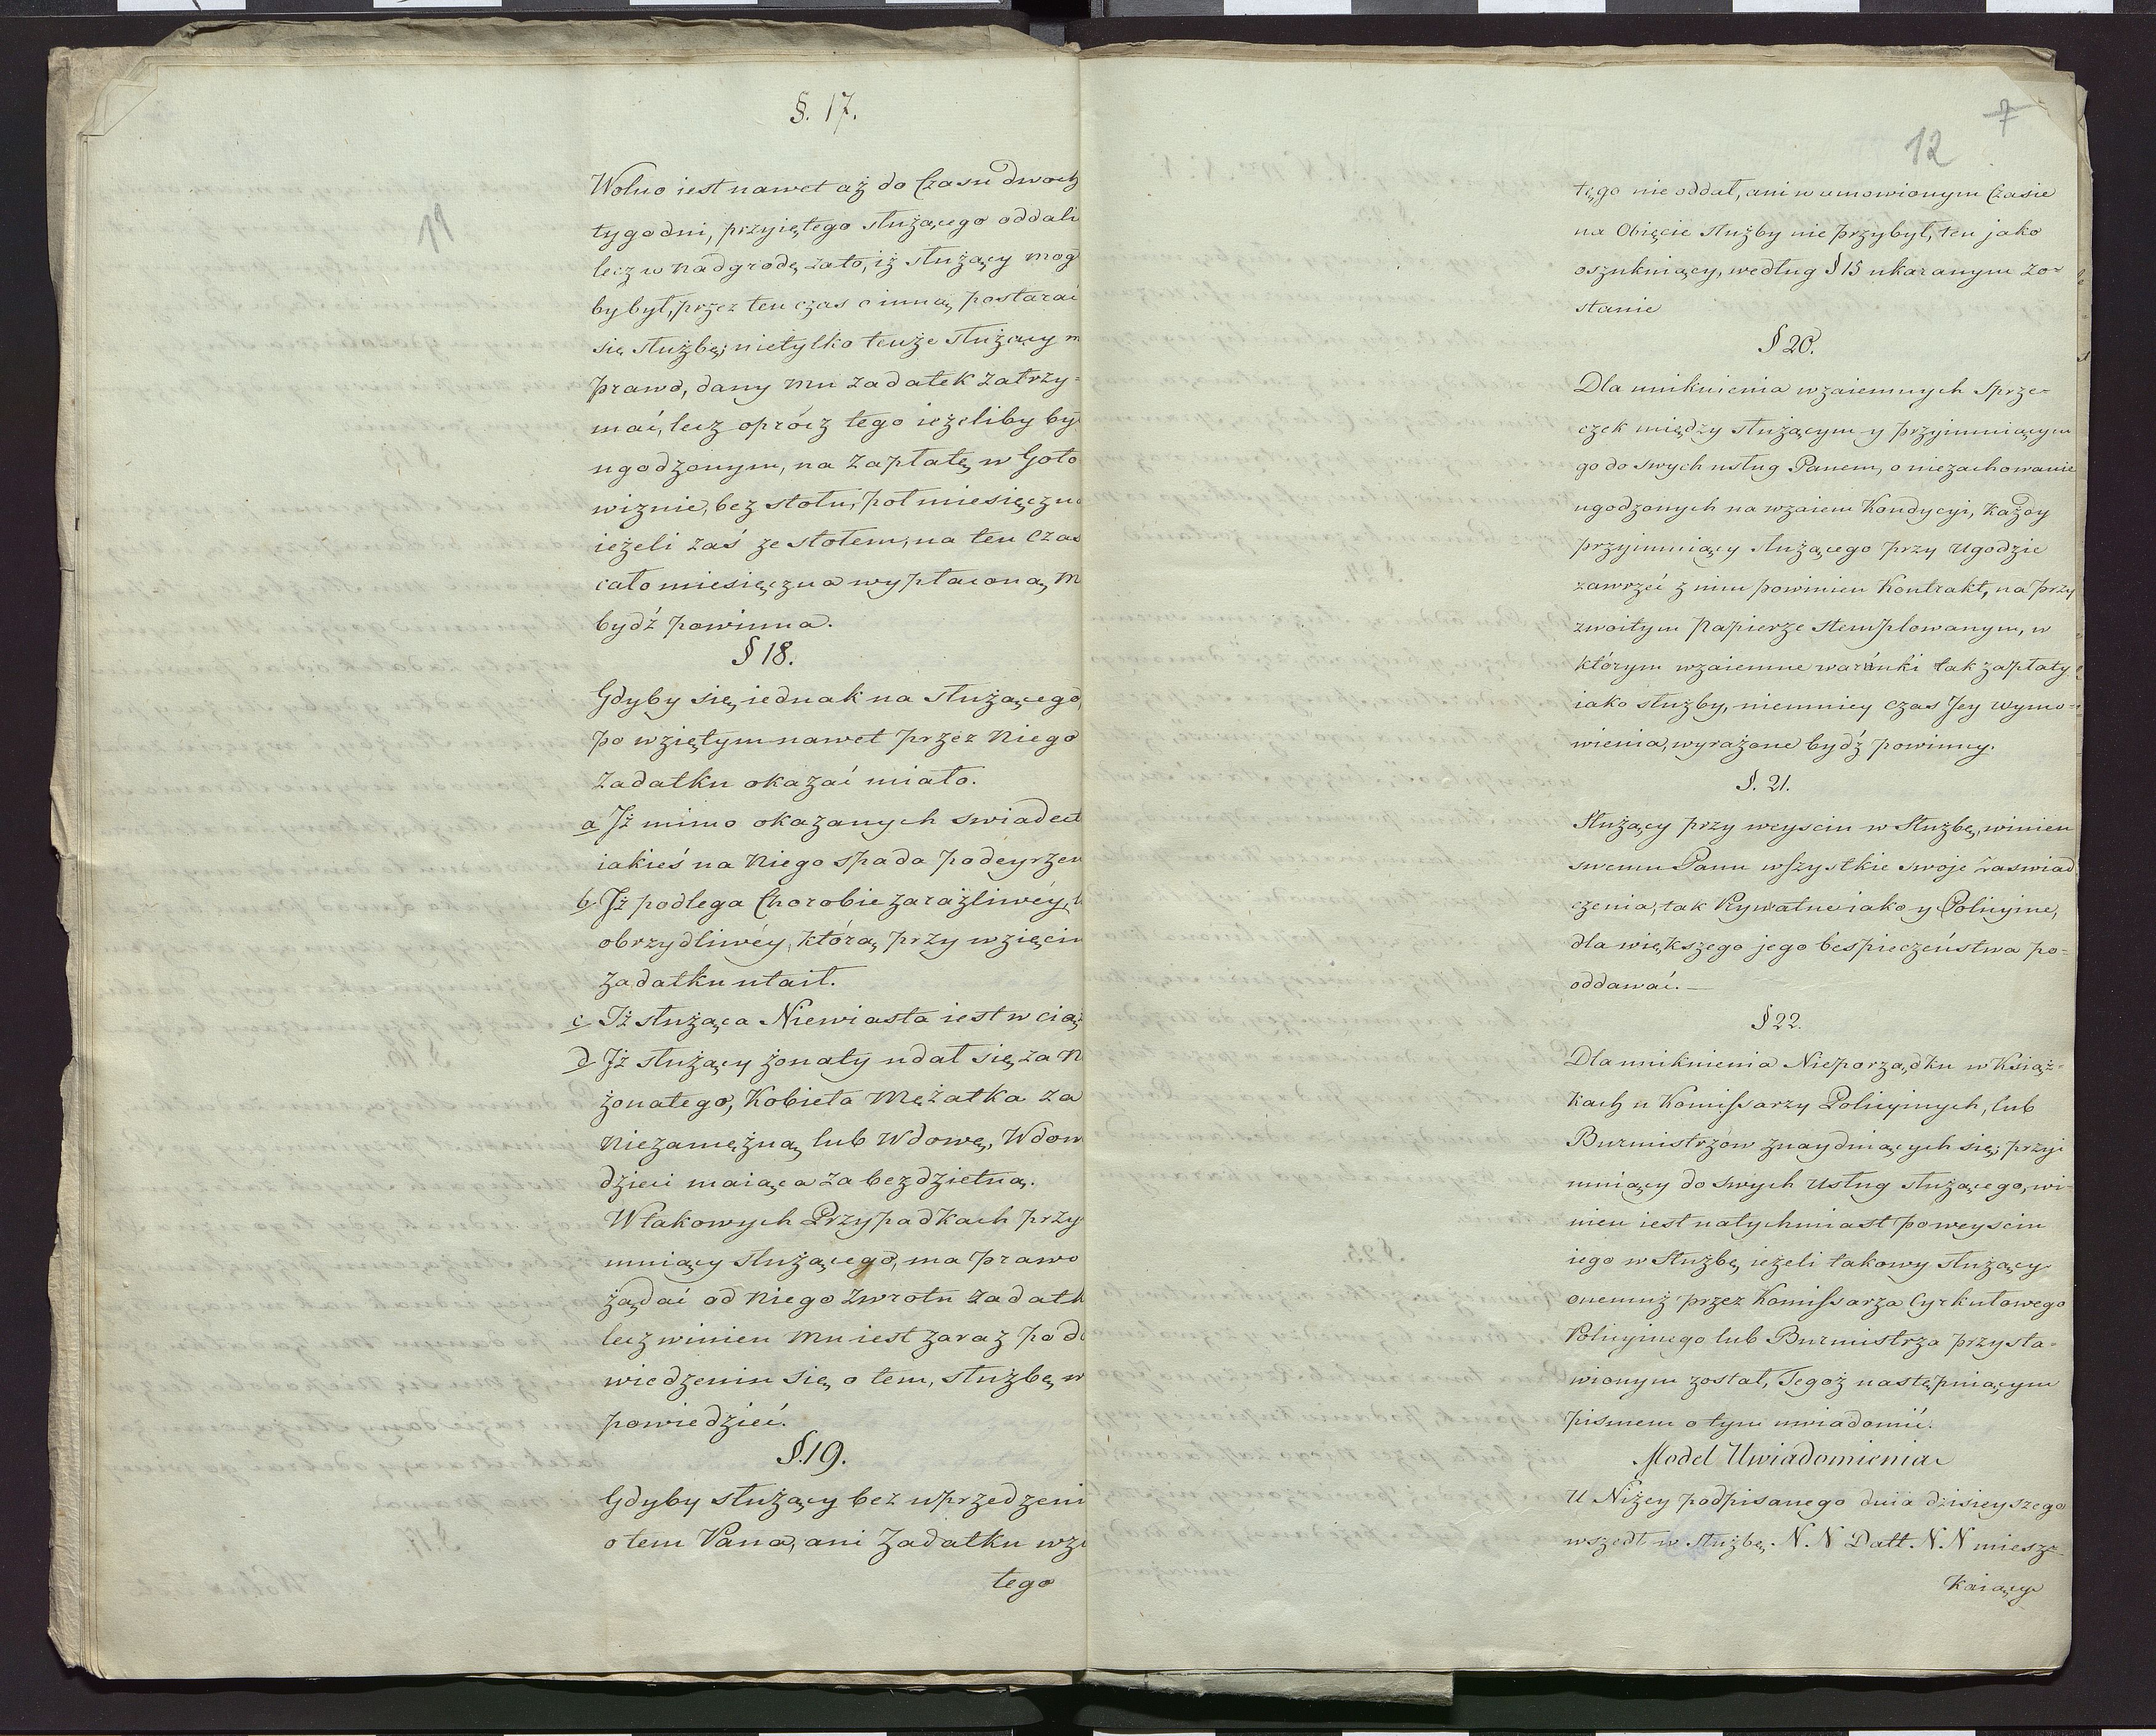 §. 17.
Wolno iest nawet aż do Czasu dwoch
tygodni, przyiętego służącego oddali
lecz w nadgrodę zato, iż służący mog
by był, przez ten czas o inną postarać
się służbę; nietylko tenże służący m
prawo, dany mu zadatek zatrzy-
mać, lecz oprócz tego ieżeliby by
ugodzonym, na zapłatę w Goto
wiznie, bez stołu, poł miesięczna
ieżeli zaś ze stołem, na ten Czas
cało miesięczna wypłaconą m
bydź powinna.
§ 18.
Gdyby się iednak na służącego,
po wziętym nawet przez niego
zadatku okazać miało.
a Jż mimo okazanych swiadect
iakieś na niego spada podeyrzen
b Jż podlega Chorobie zaraźliwéy, l
obrzydliwéy, którą przy wzięciu
zadatku utaił.
c Iż służąca Niewiasta iest w ciąż
d Jż służący żonaty udał się za n
żonatego, Kobieta Mężatka za
niezamężną lub Wdowę, Wdow
dzieci maiąca za bezdzietną.
W takowych Przypadkach przy
muiący służącego, ma prawo
żądać od niego zwrotu zadatk
lecz winien mu iest zaraz po do
wiedzeniu się o tem, służbę w
powiedzieć.
§. 19.
Gdyby służący bez uprzedzeni
o tem Pana, ani zadatku wzi
tego
11
7
12
tego nie oddał, ani w umowionym Czasie
na Obięcie służby nie przybył, ten jako
oszukuiący, według § 15 ukaranym zo-
stanie
§ 20.
Dla uniknienia wzaiemnych Sprze-
czek między służącym y przyimuiącym
go do swych usług Panem, o niezachowanie
ugodzonych na wzaiem Kondycyi, Każdy
przyimuiący służącego przy ugodzie
zawrzeć z nim powinien Kontrakt, na przy
zwoitym papierze stemplowanym, w
którym wzaiemne warunki tak zapłaty
iako służby, niemniey czas Jey wymo-
wienia, wyrażone bydź powinny.
§. 21.
Służący przy weysciu w Służbę, winien
swemu Panu wszystkie swoje zaswiad
czenia, tak Prywatne iako y Policyine,
dla większego jego bespieczeństwa po-
oddawać.—
§ 22.
Dla uniknienia Nieporządku w Książ-
kach u Komissarzy Policyinych, lub
Burmistrzów znayduiących się; przyi
muiący do swych usług służącego, wi-
nien iest natychmiast po weysciu
iego w Służbę, ieżeli takowy służący
onemuż przez Komissarza Cyrkułowego
Policyinego lub Burmistrza przysta-
wionym został, Tegoż następuiącym
pismem o tym uwiadomić.
Model Uwiadomienia
U Niżey podpisanego dnia dzisieyszego
wszedł w służbę N. N Datt. N. N miesz-
kaiący